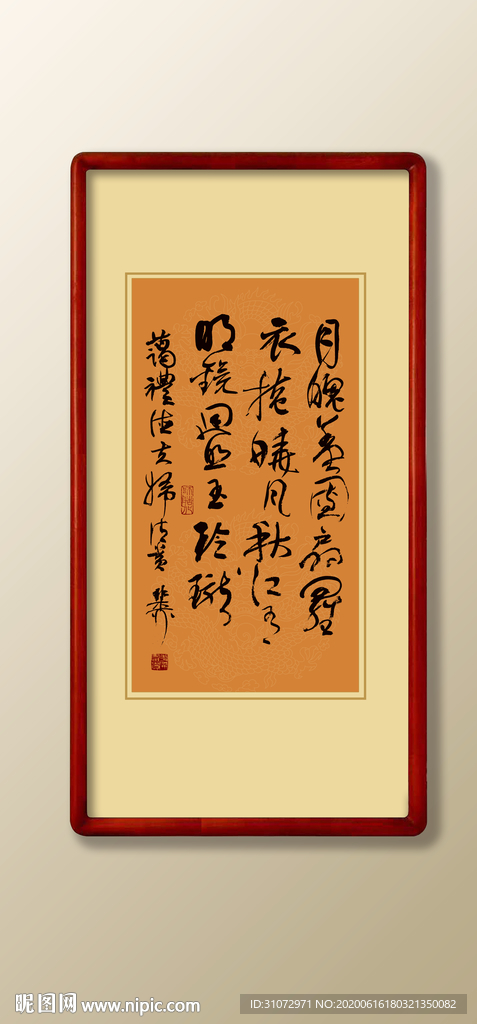 月魄團扇羅
衣曉風秋江
明鏡玉玲瓏
藹禮德夫婦清賞
昵图网 www.nipic.com
ID:31072971 NO:20200616180321350082